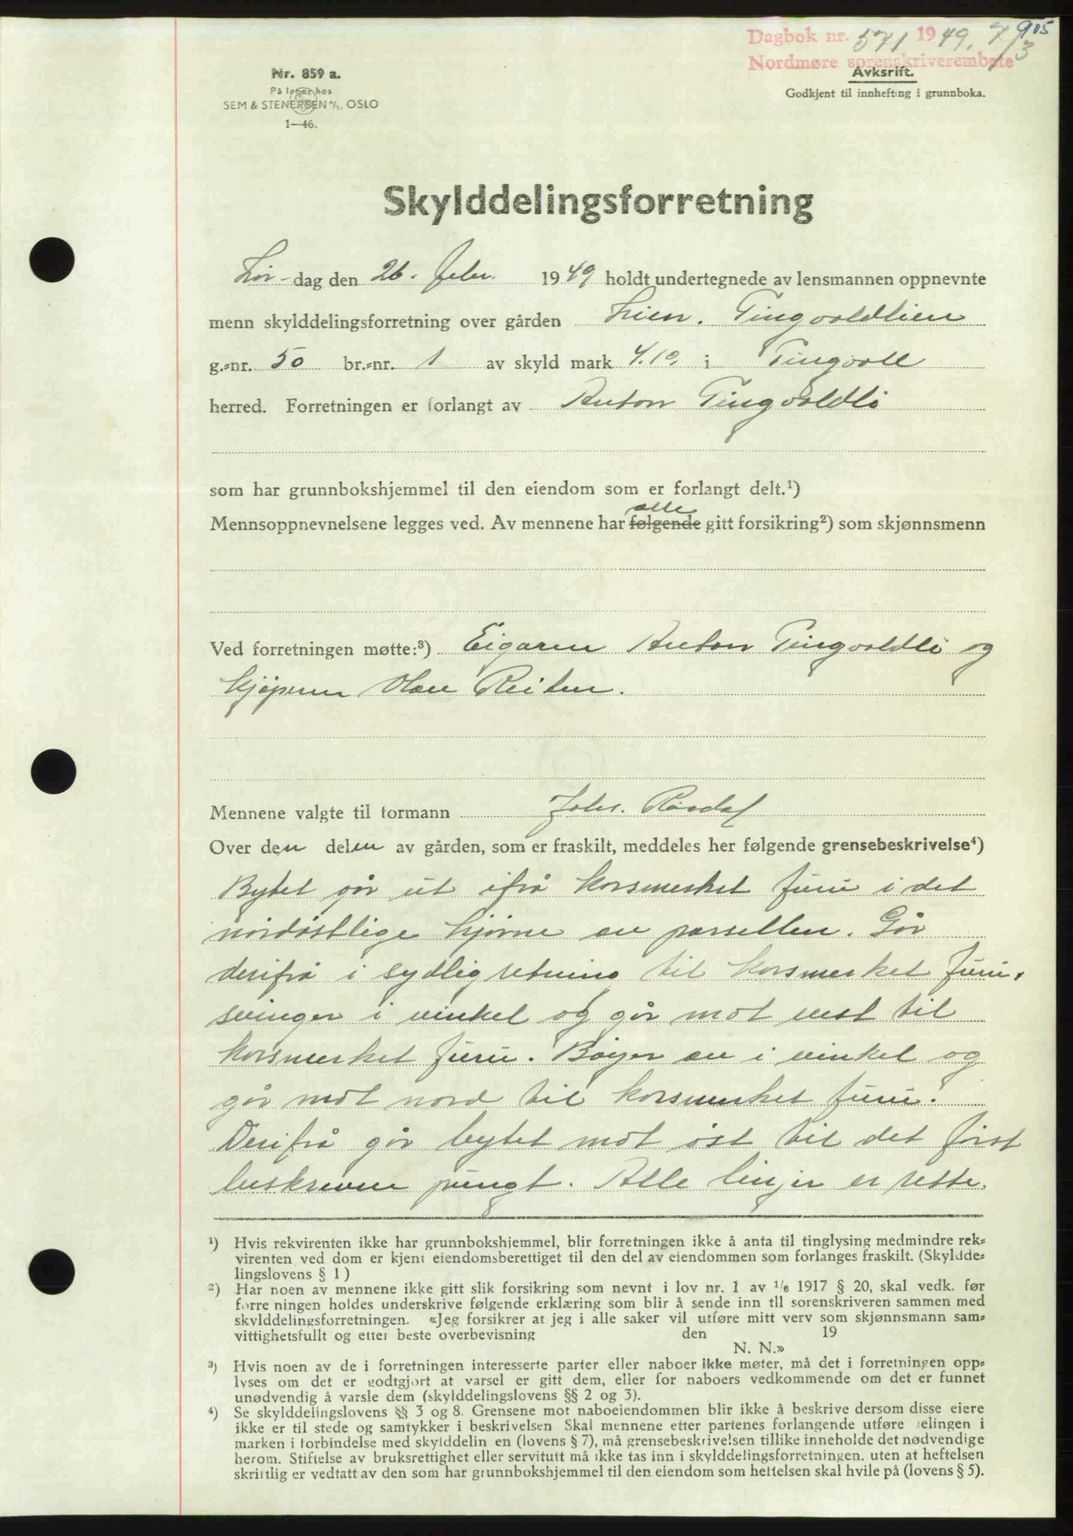 905
Dagbok nr. 571 1949, 7/3
Nordmøre sorenskriverembete
Nr. 859 a.
På lager hos
SEM & STENERSEN A/S. OSLO
1—46.
Avskrift.
Godkjent til innhefting i grunnboka.
Skylddelingsforretning
Lør-dag den 26. febr. 1949 holdt undertegnede av lensmannen oppnevnte
menn skylddelingsforretning over gården Lien. Tingvoldlien
g.-nr. 50 br.-nr. 1 av skyld mark 4.10. i Tingvoll
herred. Forretningen er forlangt av Anton Tingvoldli
som har grunnbokshjemmel til den eiendom som er forlangt delt.¹)
alle
Mennsoppnevnelsene legges ved. Av mennene har følgende gitt forsikring²) som skjønnsmenn
Ved forretningen møtte:³) Eigaren Anton Tingvoldli og
kjøperen Olav Reiten.
Mennene valgte til formann Johs. Rosdal
Over den delen av gården, som er fraskilt, meddeles her følgende grensebeskrivelse⁴)
Bytet går ut ifrå korsmerket furu i det
nordøstlige hjørne av parsellen. Går
derifrå i sydlig retning til korsmerket furu,
svinger i vinkel og går mot vest til
korsmerket furu. Bøyer av i vinkel og
går mot nord til korsmerket furu.
Derifrå går bytet mot øst til det først
beskrevne pungt. Alle linjer er rette.
¹) Hvis rekvirenten ikke har grunnbokshjemmel, blir forretningen ikke å anta til tinglysing medmindre rek-
virenten ved dom er kjent eiendomsberettiget til den del av eiendommen som forlanges fraskilt. (Skyldde-
lingslovens § 1)
²) Har noen av mennene ikke gitt slik forsikring som nevnt i lov nr. 1 av ¹/₆ 1917 § 20, skal vedk. før
forretningen holdes underskrive følgende erklæring som blir å sende inn til sorenskriveren sammen med
skylddelingsforretningen. «Jeg forsikrer at jeg i alle saker vil utføre mitt verv som skjønnsmann sam-
vittighetsfullt og etter beste overbevisning den 19
N. N.»
³) Hvis noen av de i forretningen interesserte parter eller naboer ikke møter, må det i forretningen opp-
lyses om det er godtgjort at varsel er gitt dem, eller for naboers vedkommende om det er funnet
unødvendig å varsle dem (skylddelingslovens §§ 2 og 3).
⁴) Se skylddelingslovens §§ 3 og 8. Grensene mot naboeiendommen blir ikke å beskrive dersom disse eiere
ikke er til stede og samtykker i beskrivelsen Skal mennene etter partenes forlangende utføre delingen i
marken i forbindelse med skylddelingen (lovens § 7), må grensebeskrivelsen tillike inneholde det nødvendige
herom. Stiftelse av bruksrettighet eller servitutt må ikke tas inn i skylddelingsforretningen. uten at heftelsen
skriftlig er vedtatt av den som har grunnbokshjemmel til den eiendom som heftelsen skal hvile på (lovens § 5).